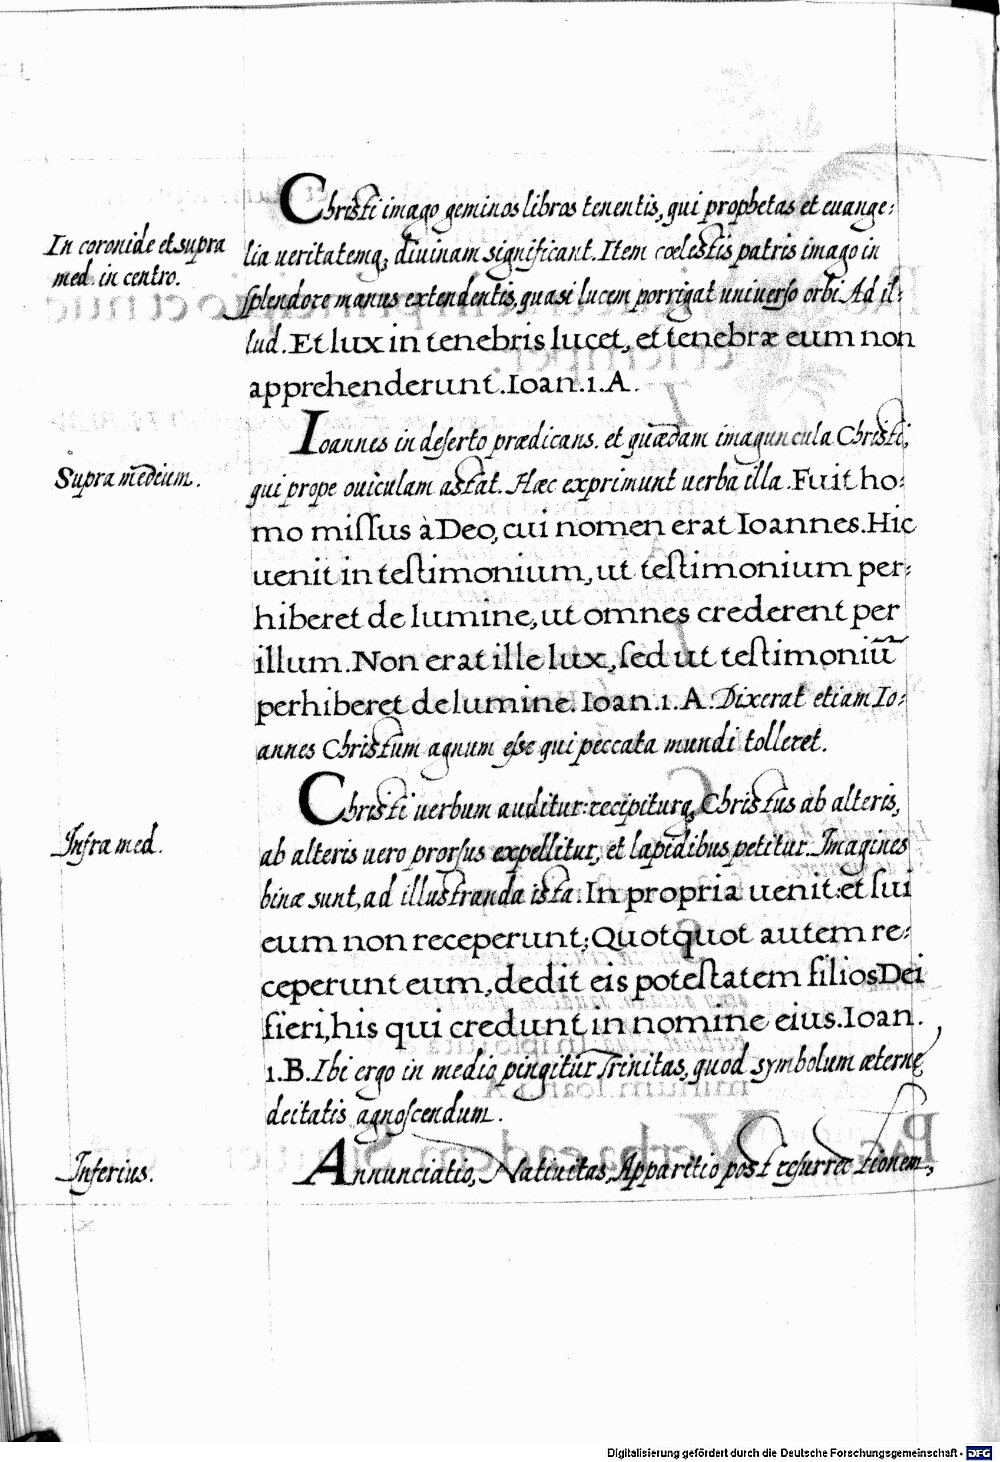 Christi imago geminos libros tenentis, qui prophetas et euange:
In coronide et supra
med. in centro.
lia ueritatemq; diuinam significant. Item cœlestis patris imago in
splendore manus extendentis, quasi lucem porrigat uniuerso orbi. Ad il:
lud. Et lux in tenebris lucet, et tenebræ eum non
apprehenderunt. Ioan. 1. A.
Ioannes in deserto prædicans. et quædam imaguncula Christi,
Supra medium.
qui prope ouiculam astat. Hæc exprimunt uerba illa. Fuit ho:
mo missus à Deo, cui nomen erat Ioannes. Hic
uenit in testimonium, ut testimonium per:
hiberet de lumine, ut omnes crederent per
illum. Non erat ille lux, sed ut testimoniū
perhiberet de lumine. Ioan. 1. A. Dixerat etiam Io:
annes Christum agnum esse qui peccata mundi tolleret.
Christi uerbum auditur: recipiturq; Christus ab alteris,
Infra med.
ab alteris uero prorsus expellitur, et lapidibus petitur. Imagines
binæ sunt, ad illustranda ista. In propria uenit: et sui
eum non receperunt; Quotquot autem re:
ceperunt eum, dedit eis potestatem filios Dei
fieri, his qui credunt in nomine eius. Ioan.
1. B. Ibi ergo in medio pingitur Trinitas, quod symbolum æternę
deitatis agnoscendum.
Inferius.
Annunciatio, Natiuitas, Apparitio post resurrectionem,
Digitalisierung gefördert durch die Deutsche Forschungsgemeinschaft - DFG